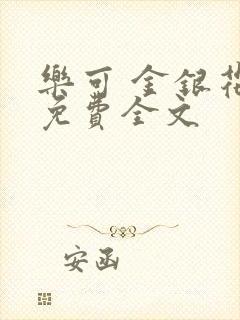 樂可 金銀花
免費全文
安函